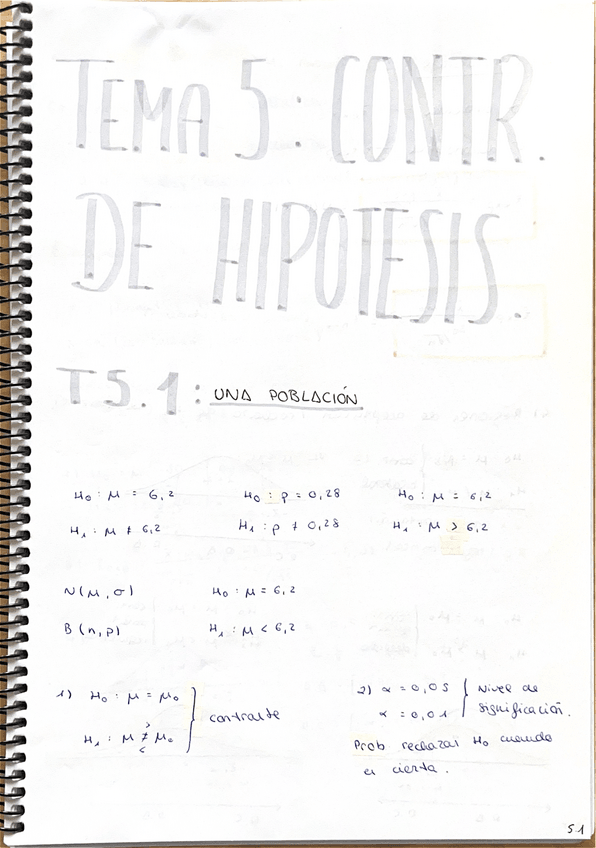 TEMA 5: CONTR.
DE HIPOTESIS.
T 5.1: UNA POBLACIÓN
H₀ : μ = 6,2 H₀ : p = 0,28 H₀ : μ = 6,2
H₁ : μ ≠ 6,2 H₁ : p ≠ 0,28 H₁ : μ > 6,2
N(μ, σ) H₀ : μ = 6,2
B(n, p) H₁ : μ < 6,2
1) H₀ : μ = μ₀
H₁ : μ ≠ μ₀
>
<
contraste
2) α = 0,05
α = 0,01
Nivel de
significación.
Prob rechazar H₀ cuando
es cierta.
5.1